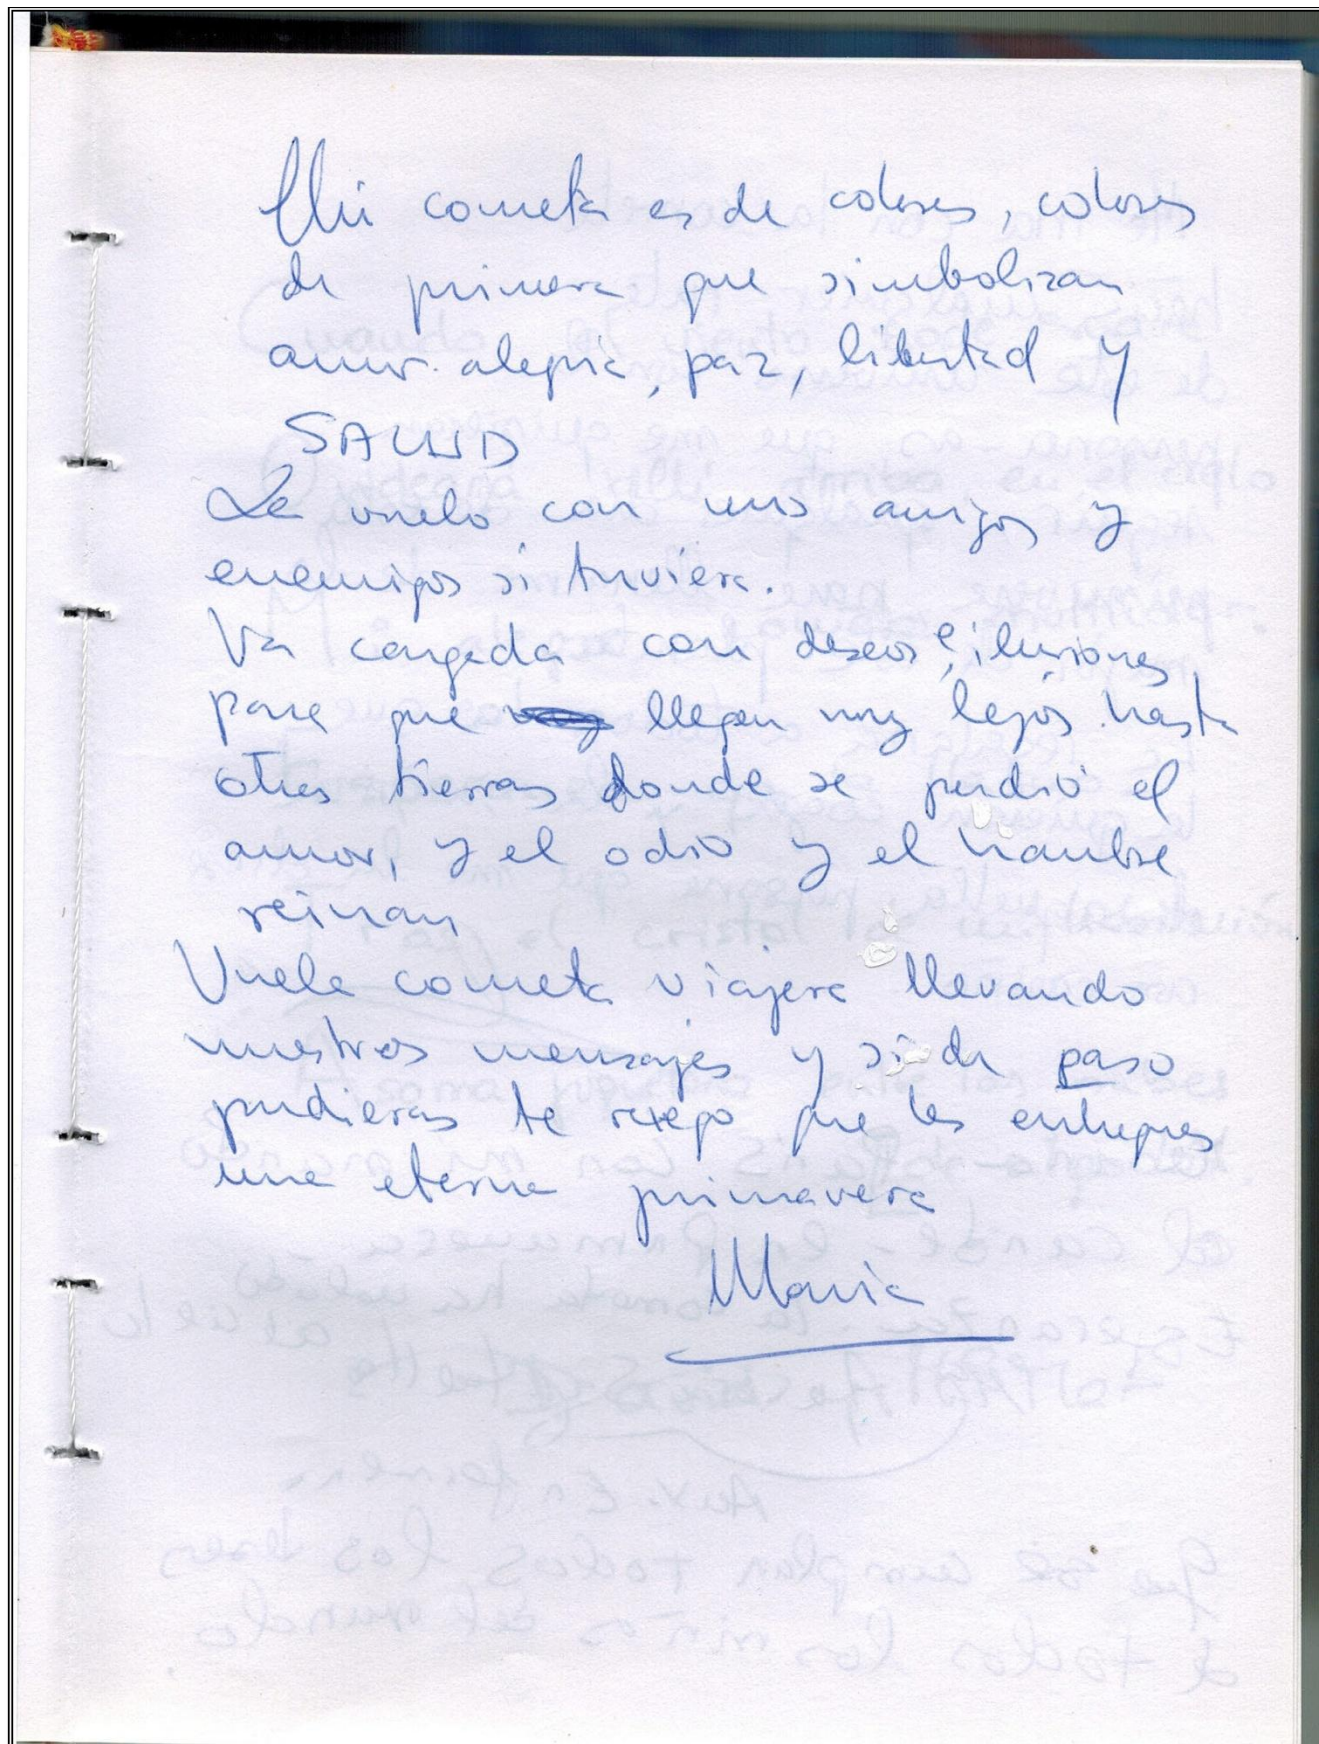 Mi cometa es de colores, colores
de primera que simbolizan
amor. alegria, paz, libertad y
SALUD
La vuelo con mis amigos y
enemigos si tuviera.
Va cargada con deseos e ilusiones
para que llegen muy lejos hasta
otras tierras donde se perdió el
amor, y el odio y el hambre
reinan
Vuela cometa viajera llevando
nuestros mensajes y si de paso
pudieras te ruego que les entregues
una eterna primavera
Maria